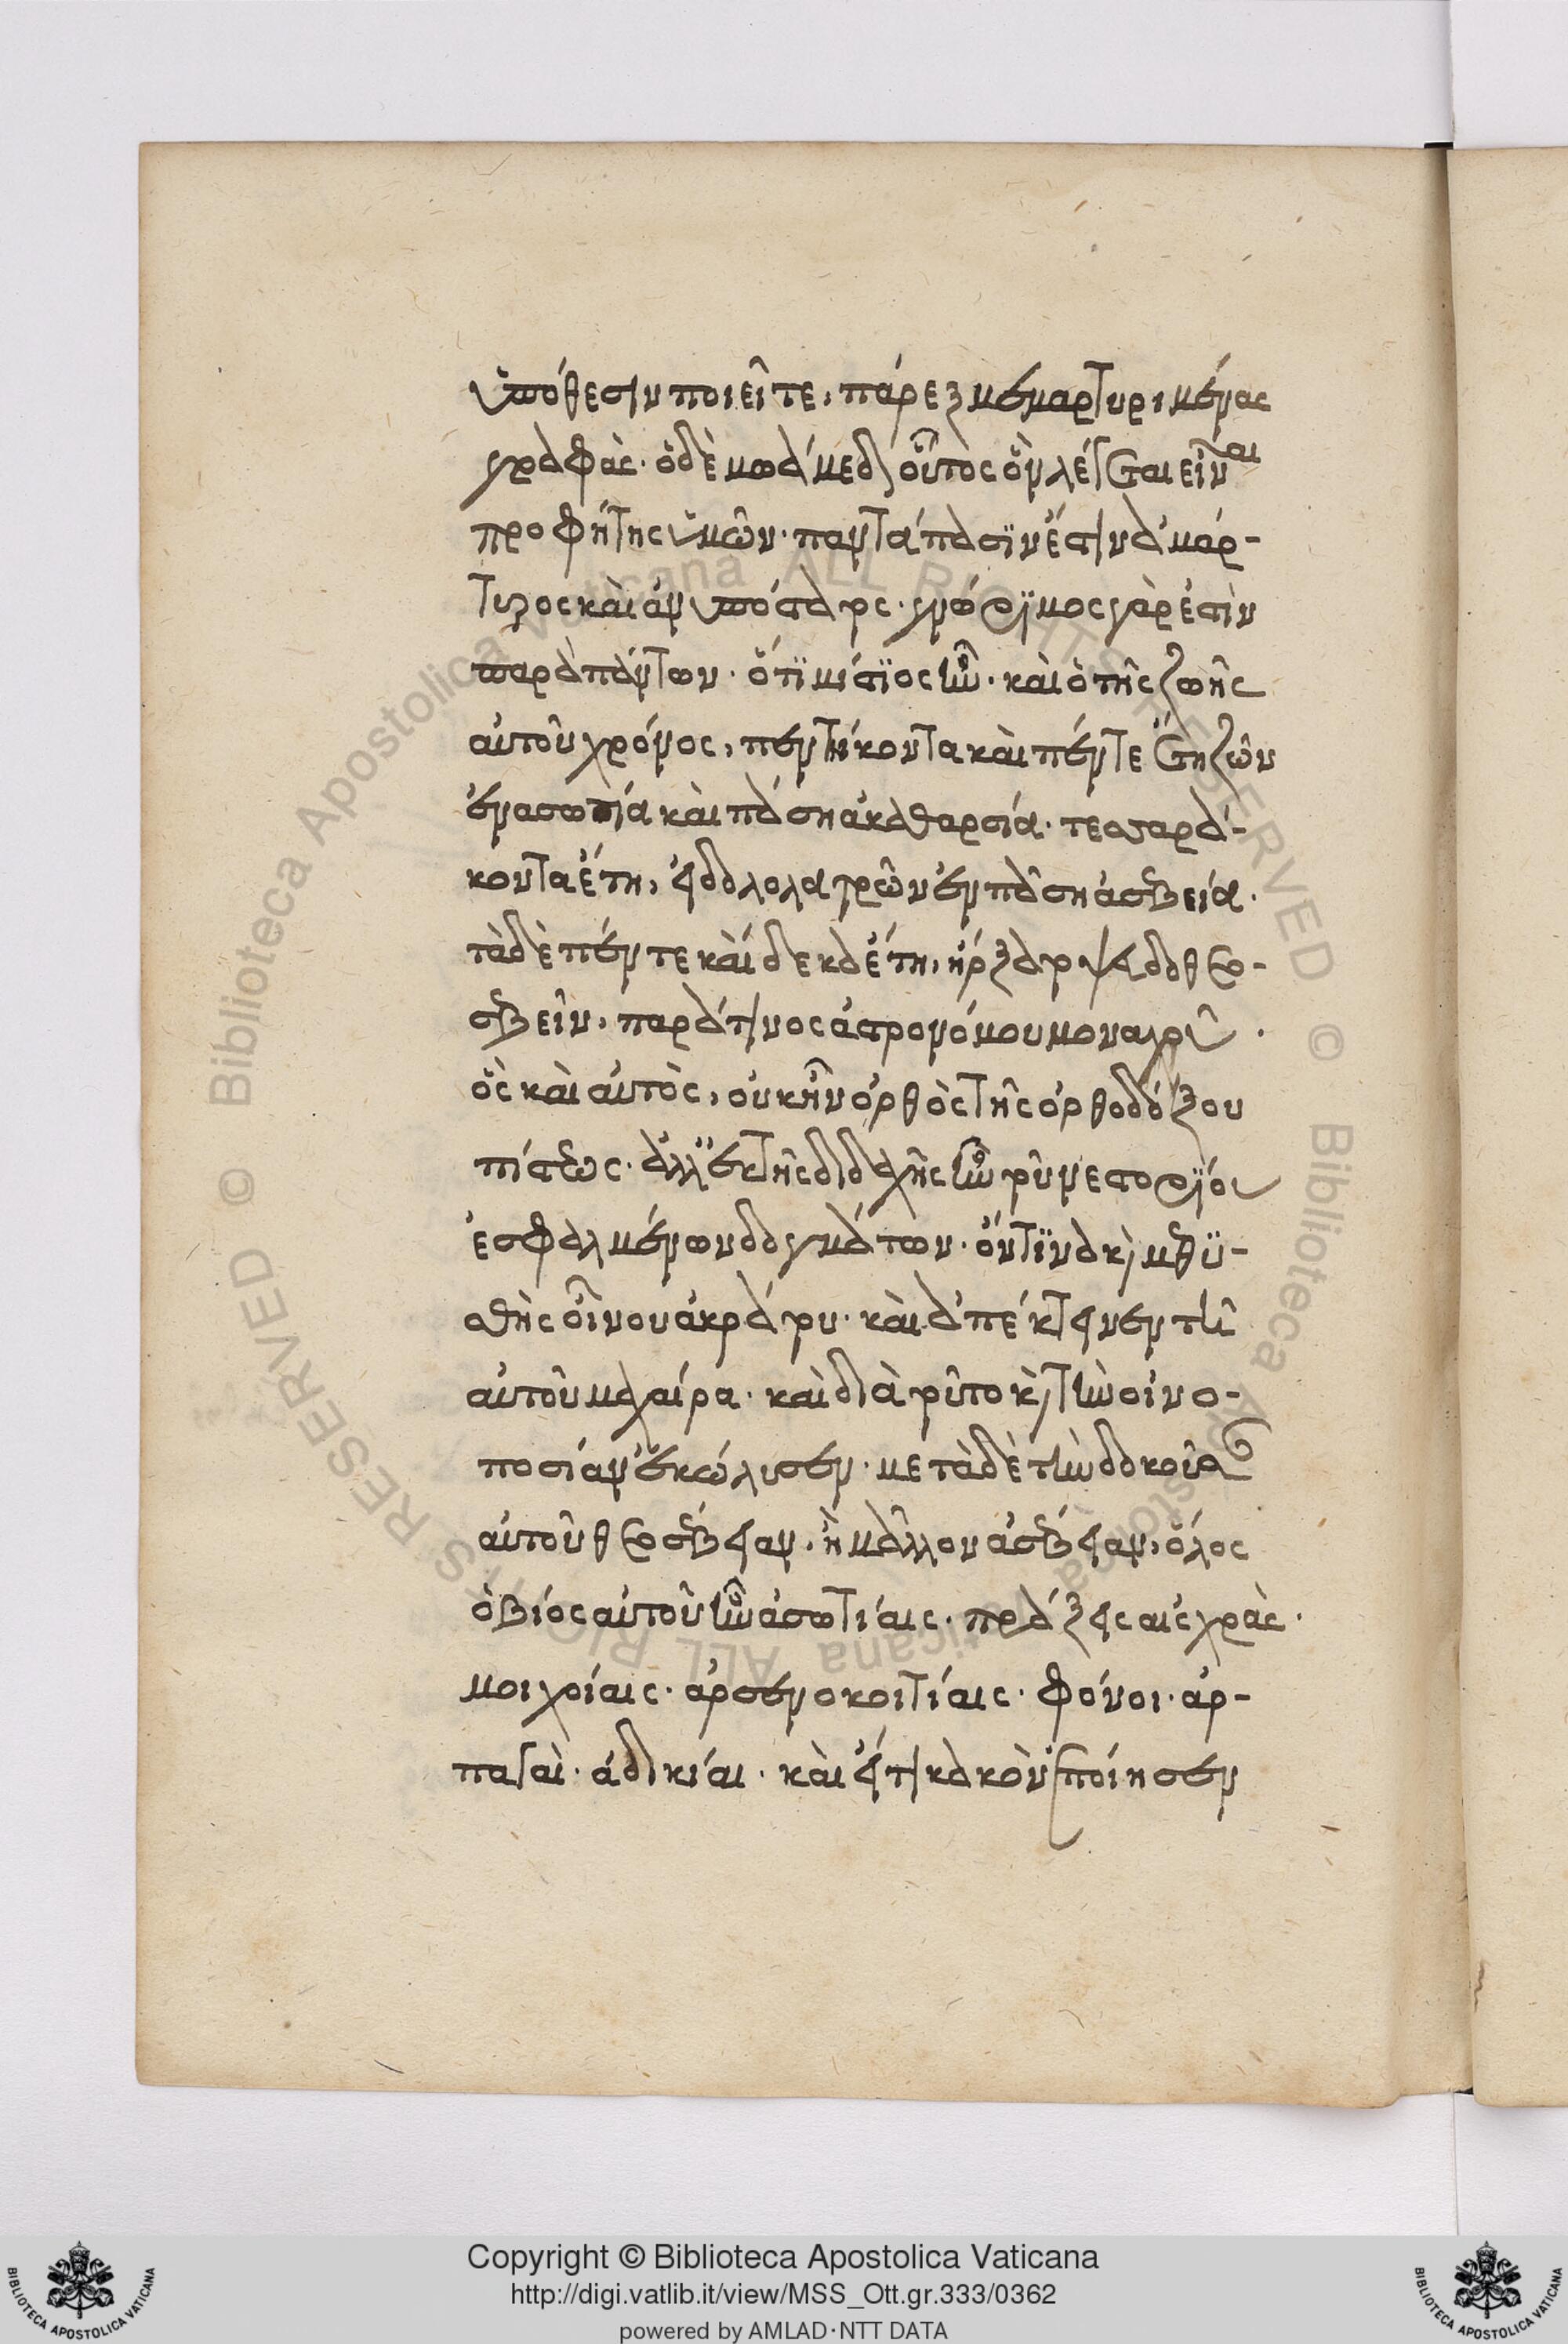 ὑπόθεσιν ποιεῖτε, πάρεξ μεμαρτυριμένας
γραφάς. ὁ δὲ μωάμεδ οὗτος ὃν λέγεται εἶναι
προφήτης ὑμῶν. παντάπασϊν ἔστιν ἀμάρ-
τυρος καὶ ἀνυπόστατος. γνώρϊμος γὰρ ἐστὶν
παρὰ πάντων. ὅτϊ μίστϊος ἦν. καὶ ὁ τῆς ζωῆς
αὐτοῦ χρόνος, πεντήκοντα καὶ πέντε ἔτη ζῶν
ἐν ασωτία καὶ πάση ἀκαθαρσία. τεσσαρά-
κοντα ἔτη, εἰδολολατρῶν ἐν πάση ἀσεβεία.
τὰ δὲ πέντε καὶ δεκα ἔτη, ἤρξατο ψευδοθεο-
σεβεῖν, παρά τινος ἀστρονόμου μοναχοῦ.
ὃς καὶ αὐτὸς, οὐκ ἦν ὀρθὸς τῆς ὀρθοδόξου
πίστεως. ἀλλ' ἐκ τῆς διδαχῆς ἦν τοῦ νεστορϊου
ἐσφαλμένων δογμάτων. ὅντϊνα καὶ μεθϋ-
σθὴς οἴνου ἀκράτου. καὶ ἀπέκτεινεν τῆ
αὐτοῦ μαχαίρα. καὶ διὰ τοῦτο καὶ τὴν οἰνο-
ποσίαν ἐκώλυσεν. μετὰ δὲ τὴν δοκοῦσαν
αὐτοῦ θεοσέβειαν, ἢ μᾶλλον ἀσέβειαν, ὅλος
ὁ βιός αὐτοῦ ἦν ἀσωτίαις. πράξεις αισχράς.
μοιχρίαις. ἀρσενοκοιτίαις. φόνοι. ἁρ-
παγαὶ. ἀδικίαι. καὶ εἴ τι κακὸν ἐποίησεν
Copyright © Biblioteca Apostolica Vaticana
http://digi.vatlib.it/view/MSS_Ott.gr.333/0362
powered by AMLAD·NTT DATA